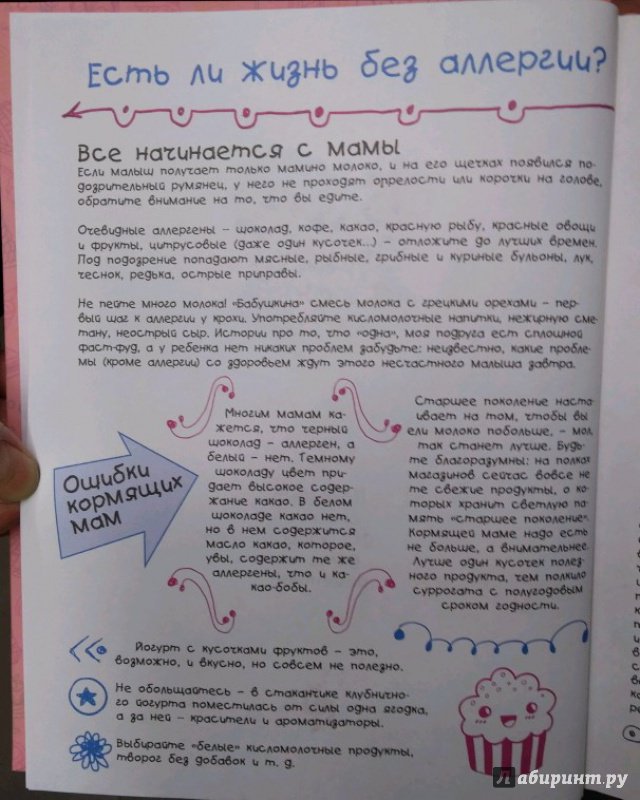 Есть ли жизнь без аллергии?
Все начинается с мамы
Если малыш получает только мамино молоко, и на его щечках появился по-
дозрительный румянец, у него не проходят опрелости или корочки на голове,
обратите внимание на то, что вы едите.
Очевидные аллергены – шоколад, кофе, какао, красную рыбу, красные овощи
и фрукты, цитрусовые (даже один кусочек...) – отложите до лучших времен.
Под подозрение попадают мясные, рыбные, грибные и куриные бульоны, лук,
чеснок, редька, острые приправы.
Не пейте много молока! «Бабушкина» смесь молока с грецкими орехами – пер-
вый шаг к аллергии у крохи. Употребляйте кисломолочные напитки, нежирную сме-
тану, неострый сыр. Истории про то, что «одна», моя подруга ест сплошной
фаст-фуд, а у ребенка нет никаких проблем забудьте: неизвестно, какие пробле-
мы (кроме аллергии) со здоровьем ждут этого несчастного малыша завтра.
Ошибки
кормящих
мам
Многим мамам ка-
жется, что черный
шоколад – аллерген, а
белый – нет. Темному
шоколаду цвет при-
дает высокое содер-
жание какао. В белом
шоколаде какао нет,
но в нем содержится
масло какао, которое,
увы, содержит те же
аллергены, что и ка-
као-бобы.
Старшее поколение наста-
ивает на том, чтобы вы
ели молоко побольше, – мол,
так станет лучше. Будь-
те благоразумны: на полках
магазинов сейчас вовсе не
те свежие продукты, о ко-
торых хранит светлую па-
мять «старшее поколение».
Кормящей маме надо есть
не больше, а внимательнее.
Лучше один кусочек полез-
ного продукта, чем полкило
суррогата с полугодовым
сроком годности.
Йогурт с кусочками фруктов – это,
возможно, и вкусно, но совсем не полезно.
Не обольщайтесь – в стаканчике клубнично-
го йогурта поместилась от силы одна ягодка,
а за ней – красители и ароматизаторы.
Выбирайте «белые» кисломолочные продукты,
творог без добавок и т. д.
Лабиринт.ру